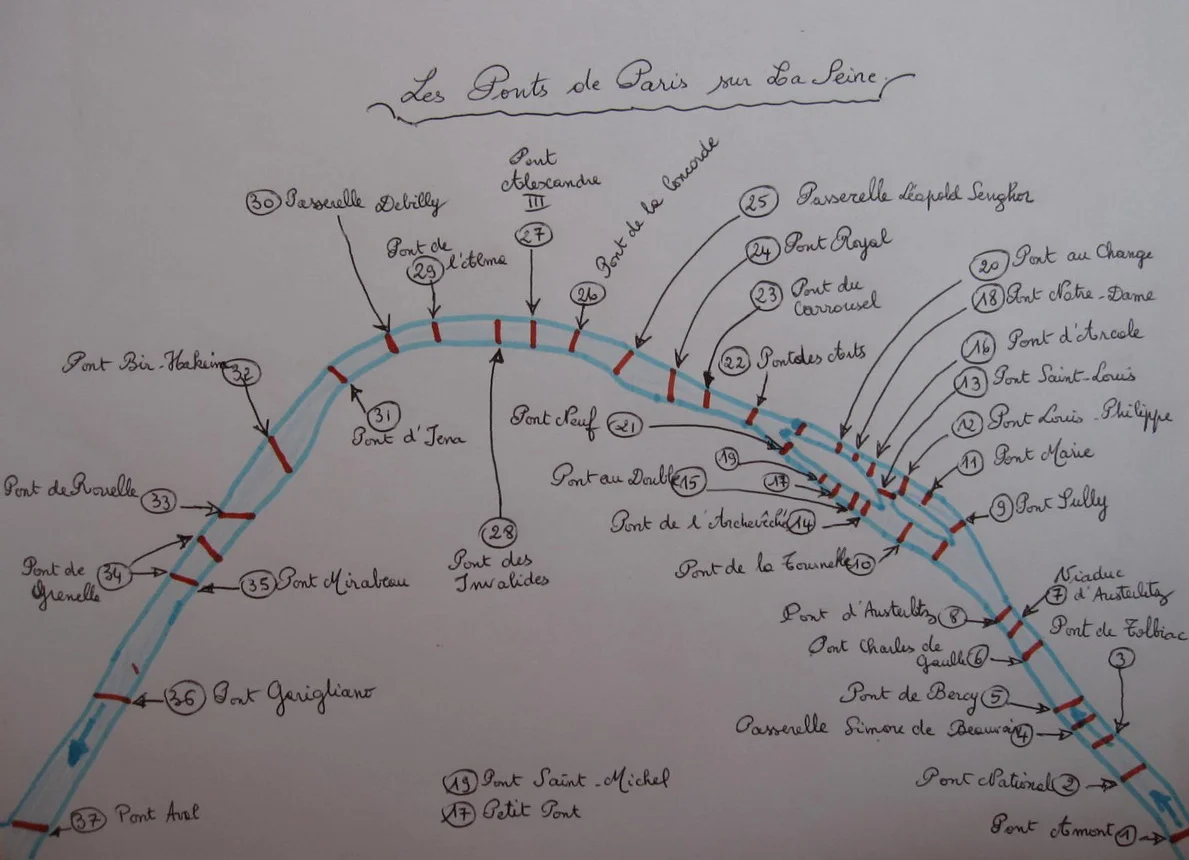 Les Ponts de Paris sur La Seine
Pont
Alexandre
III
27
Pont de la Concorde
26
30 Passerelle Debilly
Pont de
l'Alma
29
25 Passerelle Léopold Senghor
24 Pont Royal
23 Pont du
Carrousel
22 Pont des Arts
20 Pont au Change
18 Pont Notre-Dame
16 Pont d'Arcole
13 Pont Saint-Louis
12 Pont Louis-Philippe
11 Pont Marie
9 Pont Sully
Pont Bir-Hakeim 32
31
Pont d'Jena
Pont Neuf 21
19
17
Pont au Double 15
Pont de l'Archevêché 14
Pont de la Tournelle 10
Pont de Rouelle 33
28
Pont des
Invalides
Pont de
Grenelle 34
35 Pont Mirabeau
Viaduc
7 d'Austerlitz
Pont d'Austerlitz 8
Pont de Tolbiac
3
Pont Charles de
Gaulle 6
36 Pont Garigliano
Pont de Bercy 5
Passerelle Simone de Beauvoir 4
19 Pont Saint-Michel
17 Petit Pont
Pont National 2
37 Pont Aval
Pont Amont 1